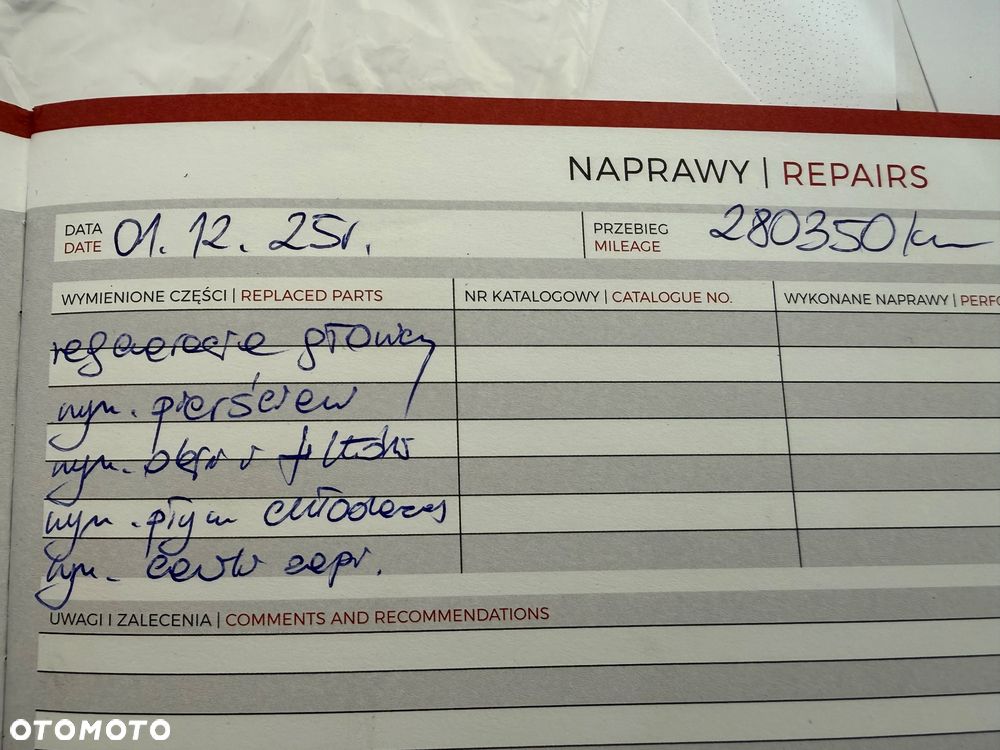 NAPRAWY | REPAIRS
DATA 01.12.25r. PRZEBIEG 280350 km
DATE MILEAGE
WYMIENIONE CZĘŚCI | REPLACED PARTS NR KATALOGOWY | CATALOGUE NO. WYKONANE NAPRAWY | PERFO
regeneracja głowicy
wym. pierścieni
wym. oleju i filtrów
wym. płynu chłodzącego
wym. zapł.
UWAGI I ZALECENIA | COMMENTS AND RECOMMENDATIONS
OTOMOTO